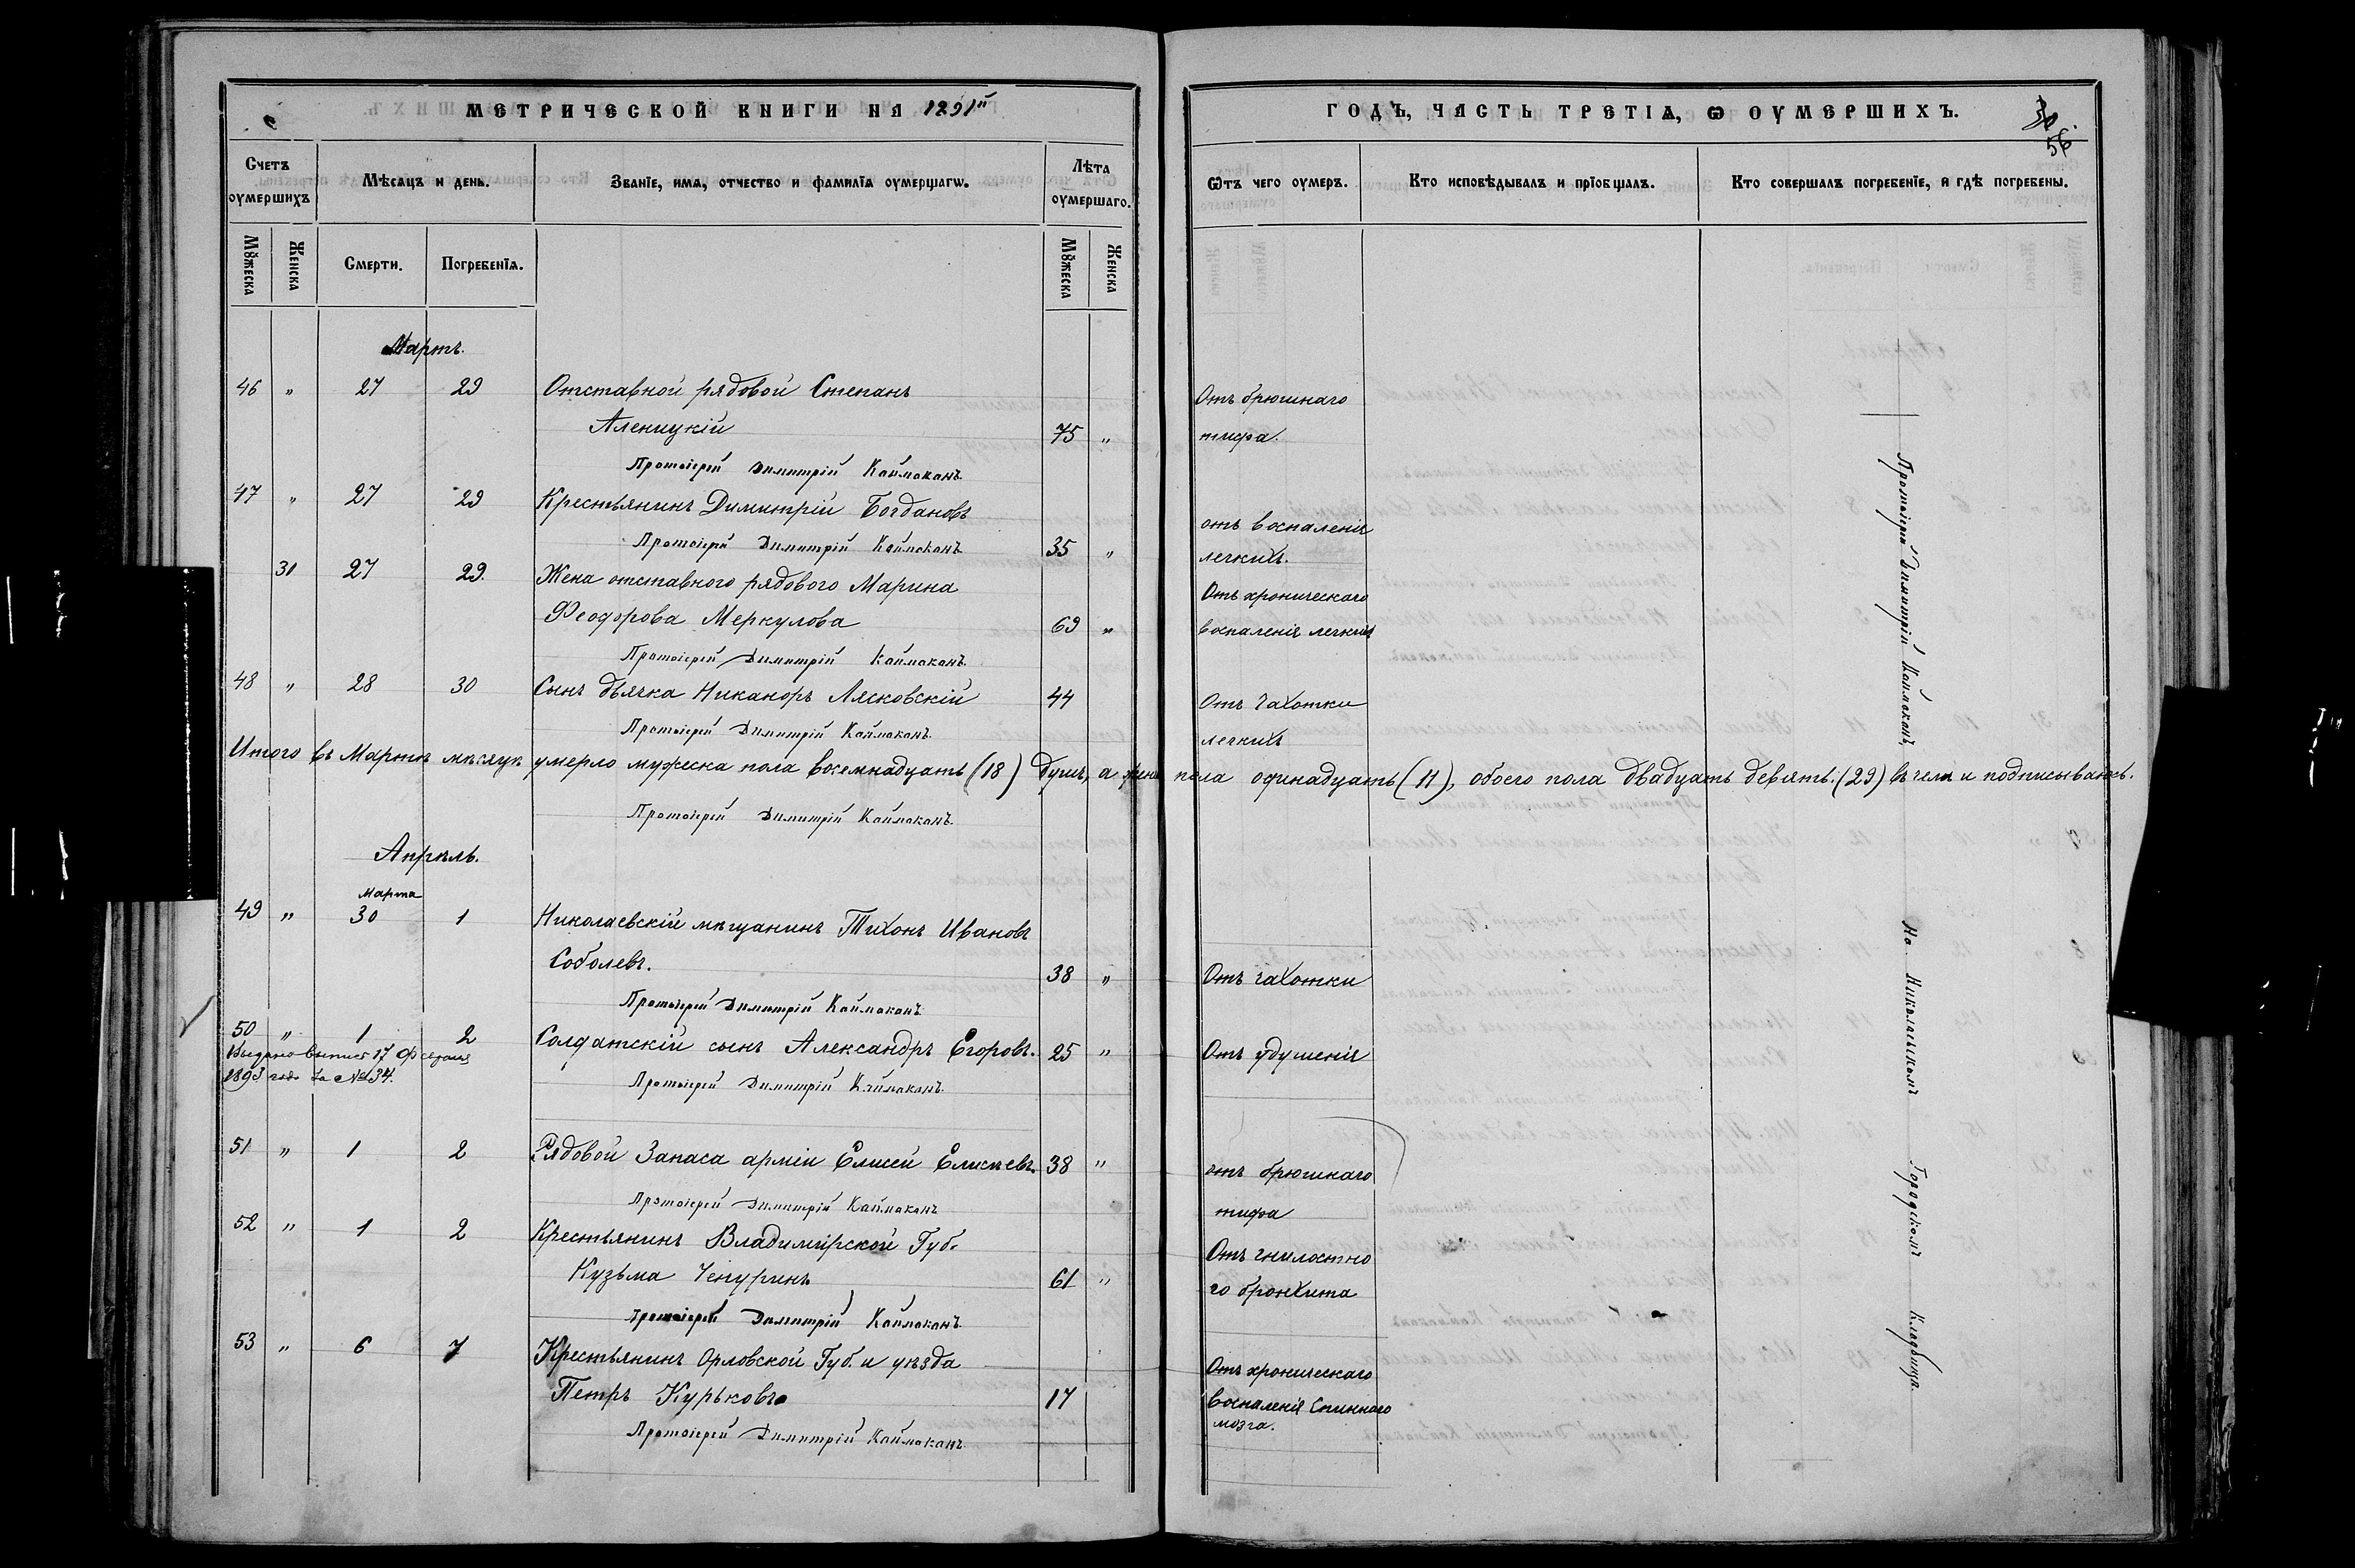 МЕТРИЧЕСКОЙ КНИГИ НА 1891й ГОДЪ, ЧАСТЬ ТРЕТІѦ, Ѡ ОУМЕРШИХЪ.
56
Счетъ оумершихъ
Мѣсѧцъ и день.
Званіе, имѧ, отчество и фамиліѧ оумершагѡ.
Лѣта оумершаго.
Ѿтъ чего оумеръ.
Кто исповѣдывалъ и пріобщалъ.
Кто совершалъ погребеніе, и гдѣ погребены.
Мꙋжеска
Женска
Смерти.
Погребеніѧ.
Мꙋжеска
Женска
Мартъ.
46 " 27 29 Отставной рядовой Степанъ
Аленицкій 75 "
Отъ брюшнаго
тифа.
Протоіерей Димитрій Каймаканъ
47 " 27 29 Крестьянинъ Димитрій Богдановъ
Протоіерей Димитрій Каймаканъ 35 "
отъ воспаленія
легкихъ.
31 27 29. Жена отставного рядового Марина
Феодорова Меркулова 69 "
Отъ хроническаго
воспаленія легкихъ
Протоіерей Димитрій Каймаканъ
48 " 28 30 Сынъ дьячка Никаноръ Лясковскій 44
Отъ чахотки
легкихъ
Протоіерей Димитрій Каймаканъ.
Итого въ Мартѣ мѣсяцѣ умерло мужеска пола восемнадцать (18) душъ, а жен. пола одинадцать (11), обоего пола двадцать девять. (29) въ чемъ и подписываюсь.
Протоіерей Димитрій Каймаканъ.
Апрѣль.
Марта
49 " 30 1 Николаевскій мѣщанинъ Тихонъ Ивановъ
Соболевъ. 38 "
Отъ чахотки
Протоіерей Димитрій Каймаканъ
50 " 1 2 Солдатскій сынъ Александръ Егоровъ. 25 "
Отъ удушенія
Выдана выпись 17 Февраля
1893 года за № 34.
Протоіерей Димитрій Каймаканъ.
51 " 1 2 Рядовой Запаса арміи Елисей Елисѣевъ. 38 "
отъ брюшнаго
тифа
Протоіерей Димитрій Каймаканъ
52 " 1 2 Крестьянинъ Владимірской Губ.
Кузьма Чепуринъ 61 "
Отъ гнилостно
го бронхита
Протоіерей Димитрій Каймаканъ
53 " 6 7 Крестьянинъ Орловской Губ. и уѣзда
Петръ Курьковъ 17
Отъ хроническаго
воспаленія Спиннаго
мозга.
Протоіерей Димитрій Каймаканъ.
Протоіерей Димитрій Каймаканъ,
На Николаевскомъ Городскомъ Кладбищѣ.